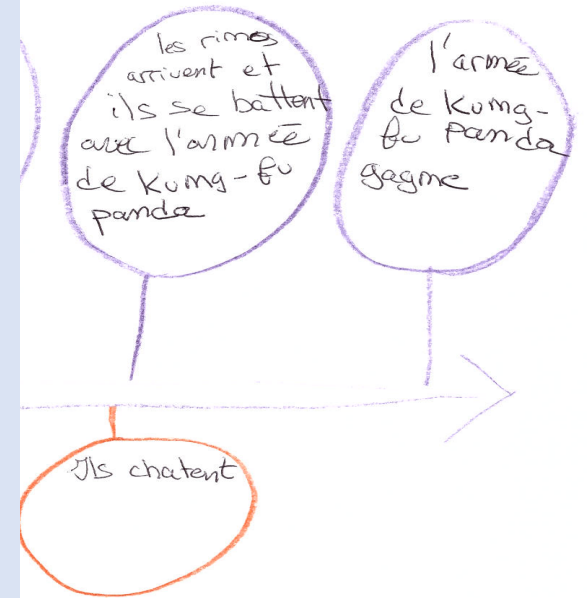 les rimes
arrivent et
ils se battent
avec l'armée
de kumg-fu
panda
l'armée
de kumg-
fu panda
gagme
Ils chatent